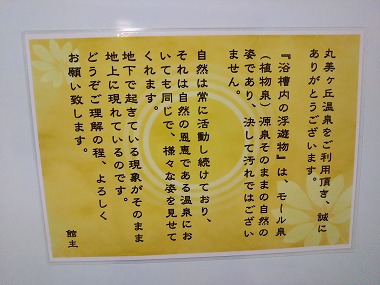 丸美ヶ丘温泉をご利用頂き、誠に
ありがとうございます。
『浴槽内の浮遊物』は、モール泉
（植物泉）源泉そのままの自然の
姿であり、決して汚れではござい
ません。
自然は常に活動し続けており、
それは自然の恩恵である温泉にお
いても同じで、様々な姿を見せて
くれます。
地下で起きている現象がそのまま
地上に現れているのです。
どうぞご理解の程、よろしく
お願い致します。
館主